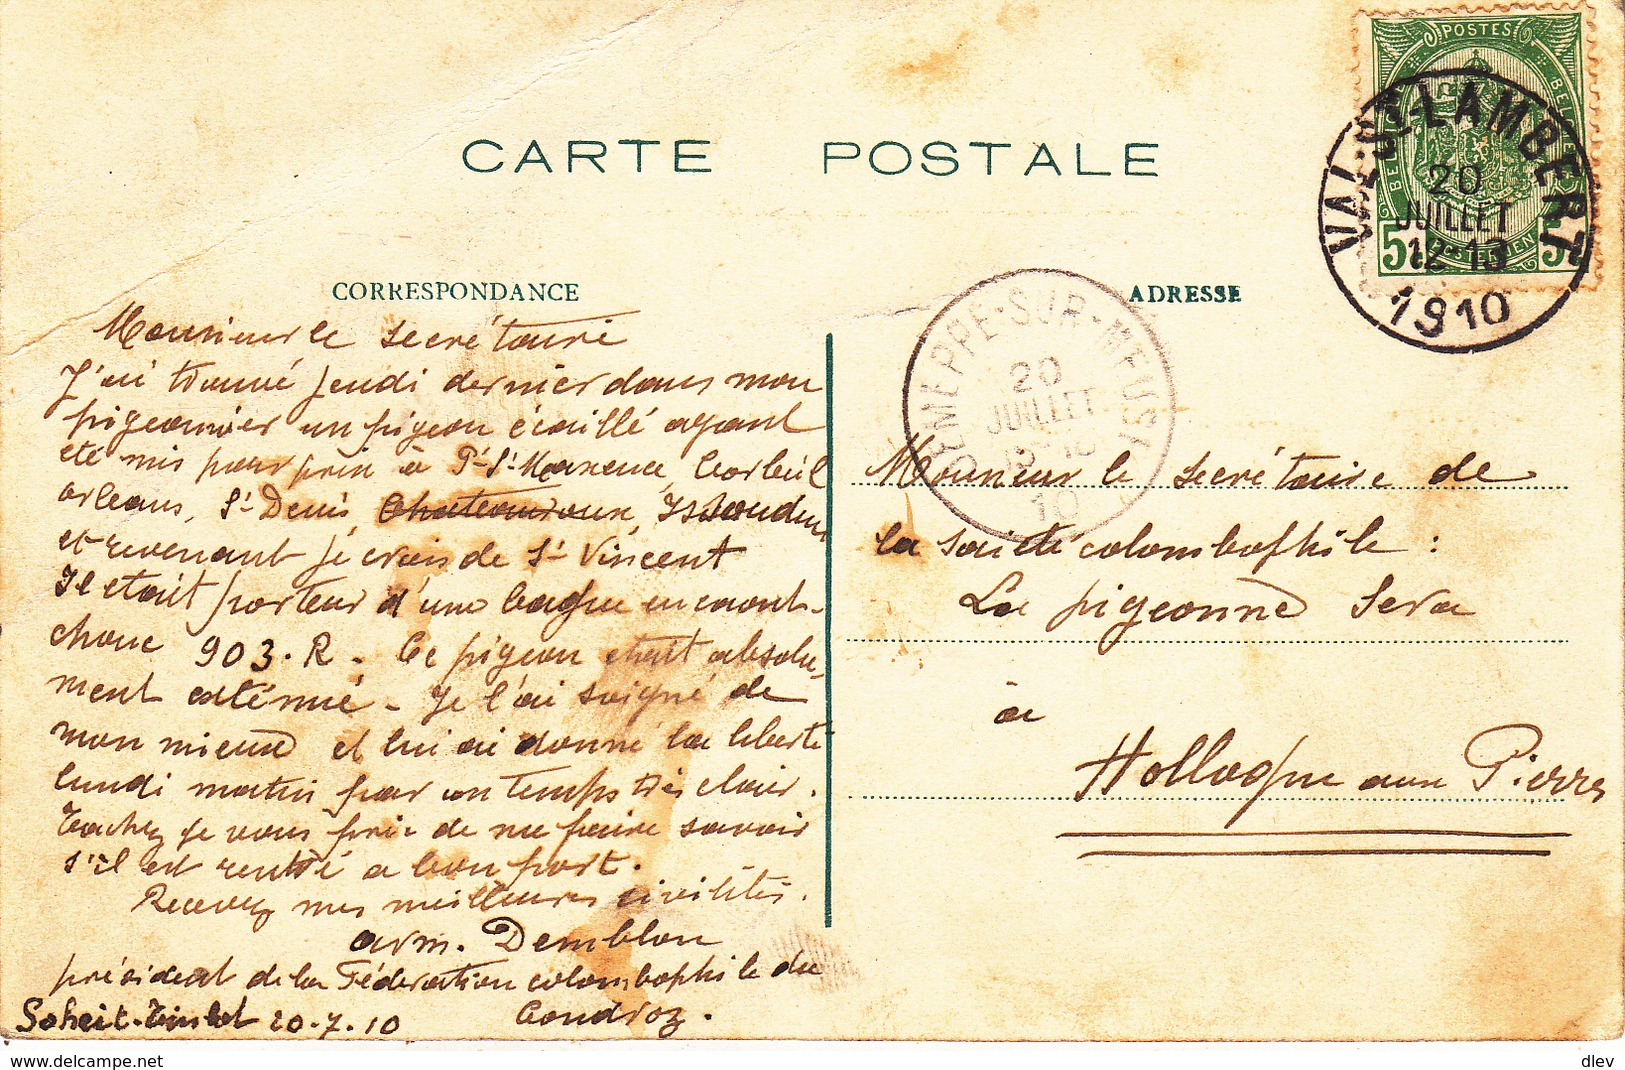 CARTE POSTALE
POSTES
VAL-ST-LAMBERT
20
JUILLET
12-13
1910
5
5
CORRESPONDANCE
ADRESSE
JEMEPPE-SUR-MEUSE
20
JUILLET
10
Monsieur le secrétaire
J'ai trouvé jeudi dernier dans mon
pigeonnier un pigeon écaillé ayant
été mis pour prix à Pt-St-Maxence, Corbeil
orleans, St-Denis, Chateauroux, Issoudun
et revenant je crois de St-Vincent
Il etait porteur d'une bague en caout-
chouc 903.R. Ce pigeon etait absolu-
ment exténué - Je l'ai soigné de
mon mieux et lui ai donné la liberté
lundi matin par un temps très clair.
Tachez je vous prie de me faire savoir
s'il est rentré a bon port.
Recevez mes meilleures civilités.
arm. Demblon
président de la Fédération colombophile du
Condroz.
Soheit-Tinlot 20-7-10
Monsieur le secrétaire de
la société colombophile :
La pigeonne Sera
à
Hollogne aux Pierres
delcampe.net
dlev